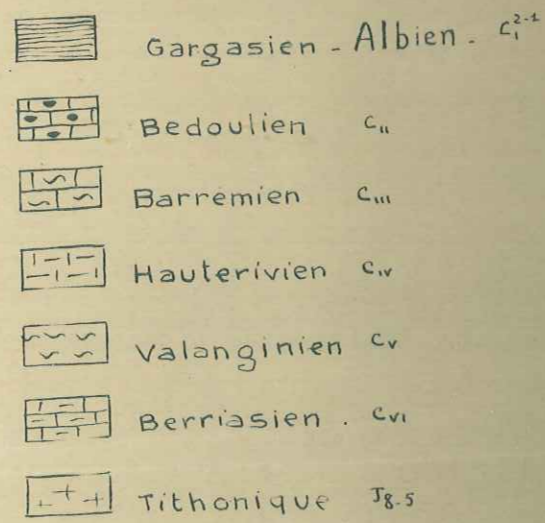 Gargasien - Albien. C₁²⁻¹
Bedoulien C₁₁
Barremien C₁₁₁
Hauterivien Cıv
Valanginien Cv
Berriasien. Cvı
Tithonique J8.5